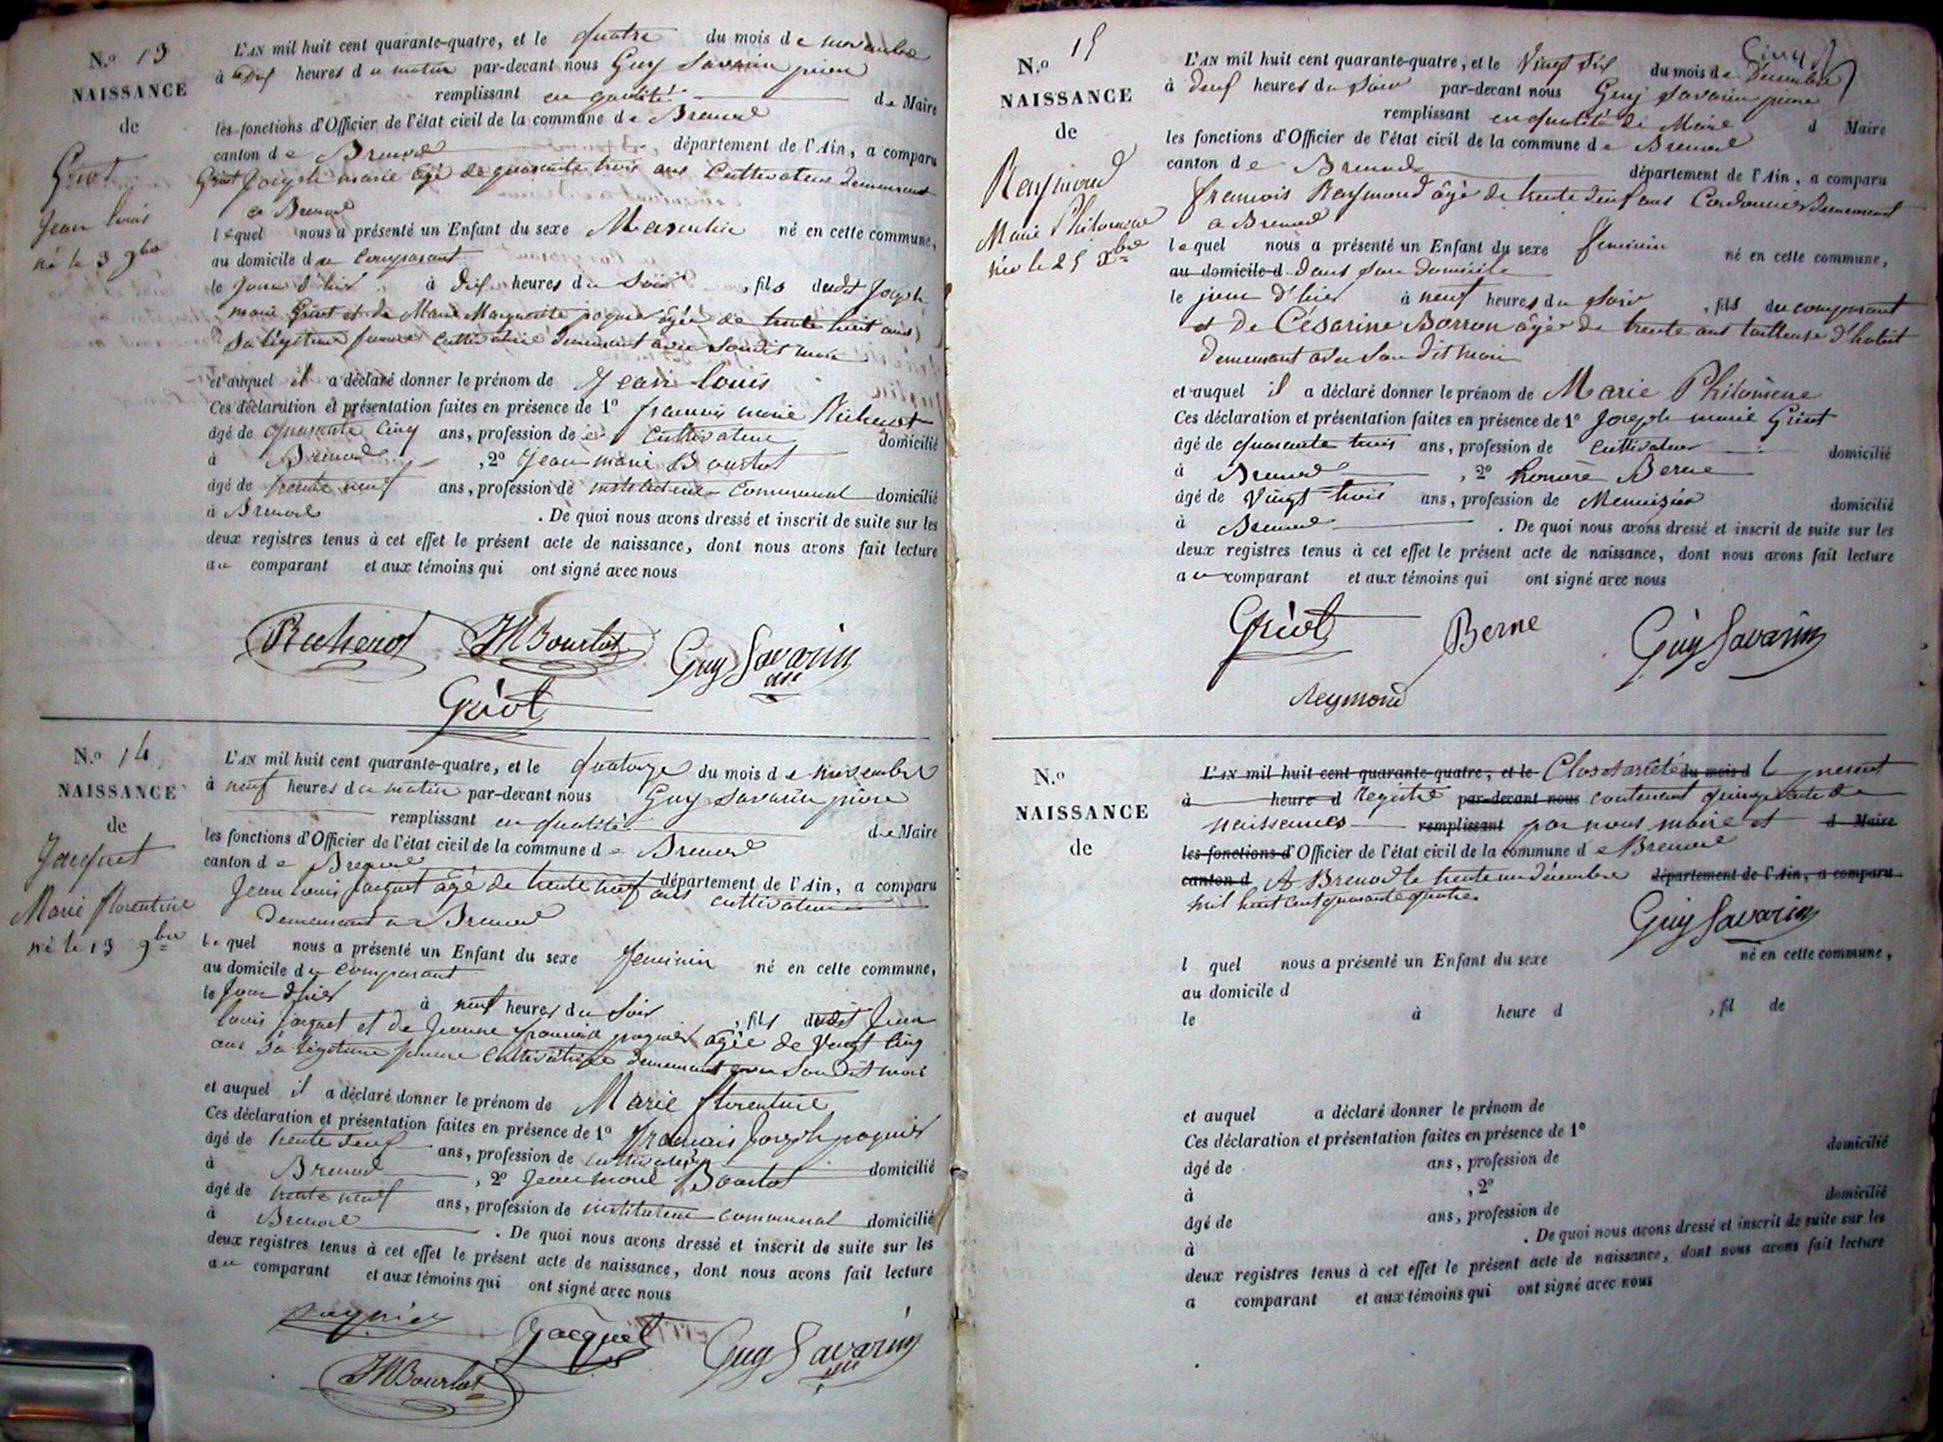 N.o 13
NAISSANCE
de
Griot
Jean Louis
né le 3 9bre
L'AN mil huit cent quarante-quatre, et le quatre du mois de novembre
à dix heures du matin par-devant nous Guy Savarin pierre
remplissant en qualité de Maire
les fonctions d'Officier de l'état civil de la commune de Brenod
canton de Brenod département de l'Ain, a comparu
Griot Joseph marie âgé de quarante trois ans Cultivateur demeurant
a Brenod
lequel nous a présenté un Enfant du sexe Masculin né en cette commune,
au domicile du Comparant
le jour d'hier à dix heures du Soir, fils dudit Joseph
marie Griot et de Marie Marguerite âgée de trente huit ans
Sa légitime femme Cultivatrice demeurant avec Son dit mari
et auquel il a déclaré donner le prénom de Jean Louis
Ces déclaration et présentation faites en présence de 1o francois marie Ruhenot
âgé de quarante cinq ans, profession de Cultivateur domicilié
à Brenod, 2o Jean marie Bourlot
âgé de trente neuf ans, profession de instituteur Communal domicilié
à Brenod. De quoi nous avons dressé et inscrit de suite sur les
deux registres tenus à cet effet le présent acte de naissance, dont nous avons fait lecture
au comparant et aux témoins qui ont signé avec nous
JMBourlot Guy Savarin
Griot
N.o 14
NAISSANCE
de
Jacquet
Marie florentine
né le 13 9bre
L'AN mil huit cent quarante-quatre, et le quatorze du mois de novembre
à neuf heures du matin par-devant nous Guy Savarin pierre
remplissant en qualité de Maire
les fonctions d'Officier de l'état civil de la commune de Brenod
canton de Brenod département de l'Ain, a comparu
Jean Louis Jacquet âgé de trente neuf ans cultivateur
demeurant a Brenod
lequel nous a présenté un Enfant du sexe feminin né en cette commune,
au domicile du comparant
le Jour d'hier à neuf heures du Soir, fils dudit Jean
Louis Jacquet et de Jeanne pognier âgée de Vingt Cinq
ans Sa légitime femme Cultivatrice demeurant avec Son dit mari
et auquel il a déclaré donner le prénom de Marie florentine
Ces déclaration et présentation faites en présence de 1o francois Joseph pognier
âgé de trente deux ans, profession de cultivateur domicilié
à Brenod, 2o Jean marie Bourlot
âgé de trente neuf ans, profession de instituteur communal domicilié
à Brenod. De quoi nous avons dressé et inscrit de suite sur les
deux registres tenus à cet effet le présent acte de naissance, dont nous avons fait lecture
au comparant et aux témoins qui ont signé avec nous
Jacquet Guy Savarin
JMBourlot
Cinq
N.o 15
NAISSANCE
de
Raymond
Marie Philomene
née le 25 Xbre
L'AN mil huit cent quarante-quatre, et le Vingt Six du mois de Décembre
à deux heures du Soir par-devant nous Guy Savarin pierre
remplissant en qualité de Maire d Maire
les fonctions d'Officier de l'état civil de la commune de Brenod
canton de Brenod département de l'Ain, a comparu
francois Raymond âgé de trente deux ans Cordonnier demeurant
a Brenod
lequel nous a présenté un Enfant du sexe feminin né en cette commune,
au domicile d dans Son domicile
le jour d'hier à neuf heures du Soir, fils du comparant
et de Césarine Borron âgée de trente ans tailleuse d'habit
demeurant avec Son dit mari
et auquel il a déclaré donner le prénom de Marie Philomene
Ces déclaration et présentation faites en présence de 1o Joseph marie Griot
âgé de quarante trois ans, profession de cultivateur domicilié
à Brenod, 2o honoré Berne
âgé de Vingt trois ans, profession de Menuisier domicilié
à Brenod. De quoi nous avons dressé et inscrit de suite sur les
deux registres tenus à cet effet le présent acte de naissance, dont nous avons fait lecture
au comparant et aux témoins qui ont signé avec nous
Griot Berne Guy Savarin
Reymond
N.o
NAISSANCE
de
L'AN mil huit cent quarante-quatre, et le Clos et arrêté du mois d le present
à heure d registre par-devant nous contenant quinze actes de
naissances remplissant par nous maire et d Maire
les fonctions d'Officier de l'état civil de la commune de Brenod
canton d A Brenod le trente un décembre département de l'Ain, a comparu
mil huit cent quarante quatre
Guy Savarin
l quel nous a présenté un Enfant du sexe né en cette commune,
au domicile d
le à heure d, fil de
et auquel a déclaré donner le prénom de
Ces déclaration et présentation faites en présence de 1o
âgé de ans, profession de domicilié
à, 2o
âgé de ans, profession de domicilié
à. De quoi nous avons dressé et inscrit de suite sur les
deux registres tenus à cet effet le présent acte de naissance, dont nous avons fait lecture
a comparant et aux témoins qui ont signé avec nous